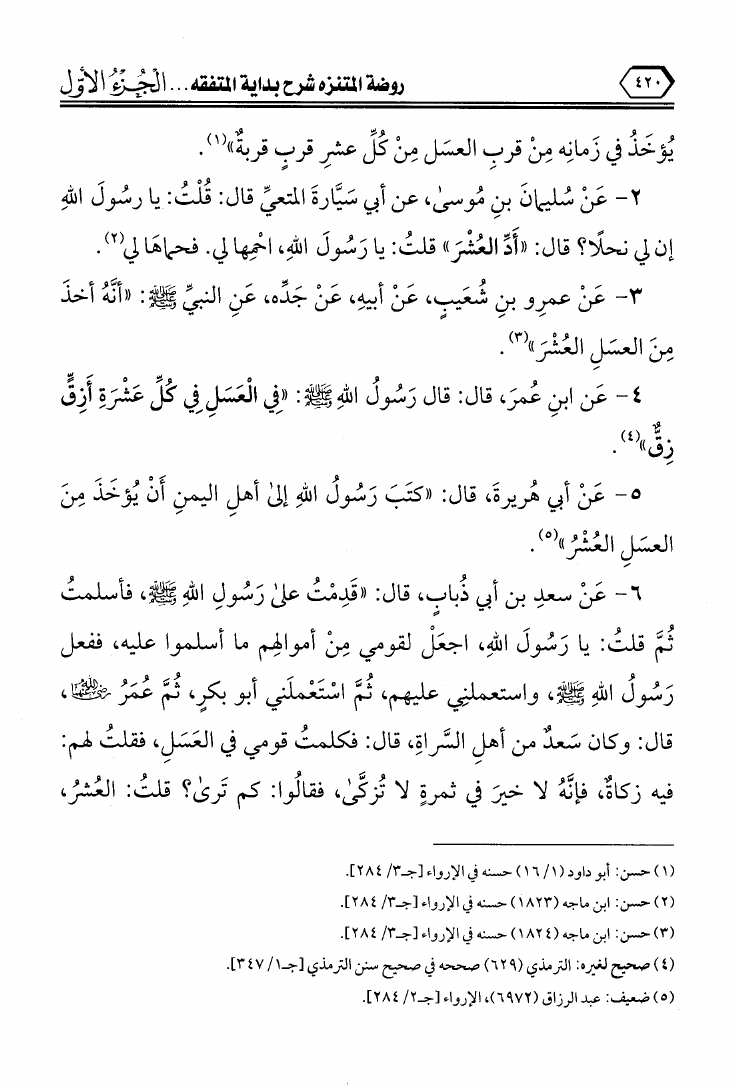 ٤٢٠
روضة المتنزه شرح بداية المتفقه... الْجُزْءُ الأَوَّل
يُؤخَذُ في زَمانِه مِنْ قربِ العسَل مِنْ كُلِّ عشرِ قربٍ قربةٌ»(١).
٢- عَنْ سُليمانَ بنِ مُوسىٰ، عن أبي سَيَّارةَ المتعيِّ قال: قُلْتُ: يا رسُولَ اللهِ
إن لي نحلًا؟ قال: «أَدِّ العُشْرَ» قلتُ: يا رَسُولَ اللهِ، احْمِها لي. فحماهَا لي(٢).
٣- عَنْ عمرِو بنِ شُعَيبٍ، عَنْ أبيهِ، عَنْ جَدِّه، عَنِ النبيِّ ﷺ: «أنَّهُ أخذَ
مِنَ العسَلِ العُشْرَ»(٣).
٤- عَن ابنِ عُمرَ، قال: قال رَسُولُ اللهِ ﷺ: «فِي الْعَسَلِ فِي كُلِّ عَشْرَةِ أَزِقٍّ
زِقٌّ»(٤).
٥- عَنْ أبي هُريرةَ، قال: «كتَبَ رَسُولُ اللهِ إلىٰ أهلِ اليمنِ أَنْ يُؤخَذَ مِنَ
العسَلِ العُشْرُ»(٥).
٦- عَنْ سعدِ بن أبي ذُبابٍ، قال: «قَدِمْتُ علىٰ رَسُولِ اللهِ ﷺ، فأسلمتُ
ثُمَّ قلتُ: يا رَسُولَ اللهِ، اجعَلْ لقومي مِنْ أموالهِم ما أسلموا عليه، ففعل
رَسُولُ اللهِ ﷺ، واستعملنِي عليهم، ثُمَّ اسْتَعْملَني أبو بكرٍ، ثُمَّ عُمَرُ رضي الله عنهما،
قال: وكان سَعدٌ من أهلِ السَّراةِ، قال: فكلمتُ قومي في العَسَلِ، فقلتُ لهم:
فيه زكاةٌ، فإنَّهُ لا خيرَ في ثمرةٍ لا تُزكَّىٰ، فقالُوا: كم تَرىٰ؟ قلتُ: العُشرُ،
(١) حسن: أبو داود (١/ ١٦) حسنه في الإرواء [جـ٣/ ٢٨٤].
(٢) حسن: ابن ماجه (١٨٢٣) حسنه في الإرواء [جـ٣/ ٢٨٤].
(٣) حسن: ابن ماجه (١٨٢٤) حسنه في الإرواء [جـ٣/ ٢٨٤].
(٤) صحيح لغيره: الترمذي (٦٢٩) صححه في صحيح سنن الترمذي [جـ١/ ٣٤٧].
(٥) ضعيف: عبد الرزاق (٦٩٧٢)، الإرواء [جـ٢/ ٢٨٤].